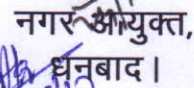 नगर आयुक्त,
धनबाद।